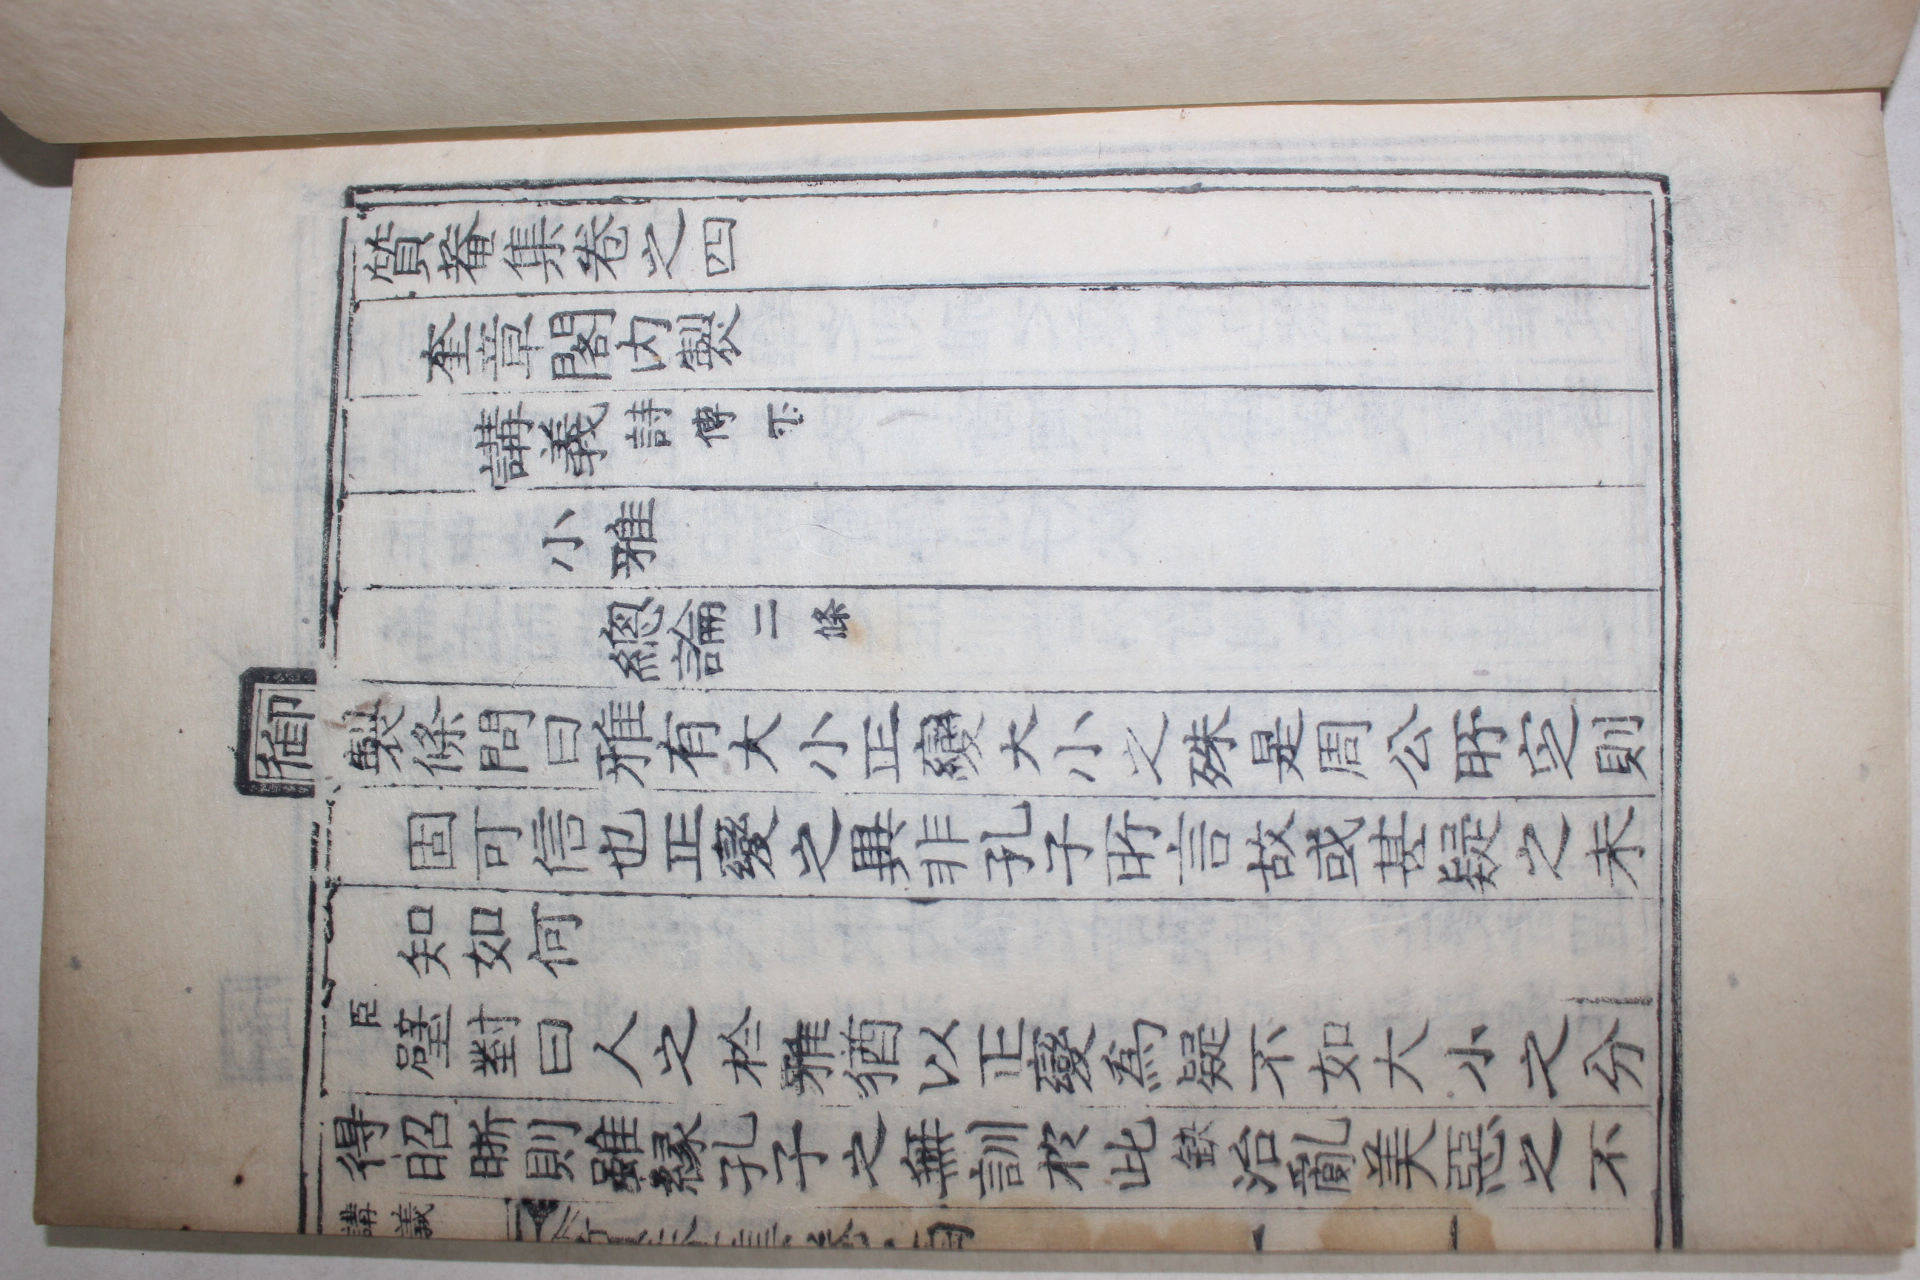 質菴集卷之四
奎章閣內製
講義 詩傳 下
小雅
總論 二條
御製條問曰雅有大小正變大小之殊是周公所定則
固可信也正變之異非孔子所言故或甚疑之未
知如何
臣璧對曰人之於雅猶以正變爲疑不如大小之分
得昭晣則雖緣孔子之無訓於此缺治亂美惡之不
講義